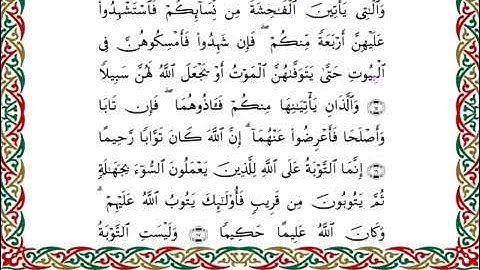 وَٱلَّٰتِى يَأْتِينَ ٱلْفَٰحِشَةَ مِن نِّسَآئِكُمْ فَٱسْتَشْهِدُوا۟
عَلَيْهِنَّ أَرْبَعَةً مِّنكُمْ ۖ فَإِن شَهِدُوا۟ فَأَمْسِكُوهُنَّ فِى
ٱلْبُيُوتِ حَتَّىٰ يَتَوَفَّىٰهُنَّ ٱلْمَوْتُ أَوْ يَجْعَلَ ٱللَّهُ لَهُنَّ سَبِيلًا
۝١٥ وَٱلَّذَانِ يَأْتِيَٰنِهَا مِنكُمْ فَـَٔاذُوهُمَا ۖ فَإِن تَابَا
وَأَصْلَحَا فَأَعْرِضُوا۟ عَنْهُمَآ ۗ إِنَّ ٱللَّهَ كَانَ تَوَّابًا رَّحِيمًا
۝١٦ إِنَّمَا ٱلتَّوْبَةُ عَلَى ٱللَّهِ لِلَّذِينَ يَعْمَلُونَ ٱلسُّوٓءَ بِجَهَٰلَةٍ
ثُمَّ يَتُوبُونَ مِن قَرِيبٍ فَأُو۟لَٰٓئِكَ يَتُوبُ ٱللَّهُ عَلَيْهِمْ ۗ
وَكَانَ ٱللَّهُ عَلِيمًا حَكِيمًا ۝١٧ وَلَيْسَتِ ٱلتَّوْبَةُ